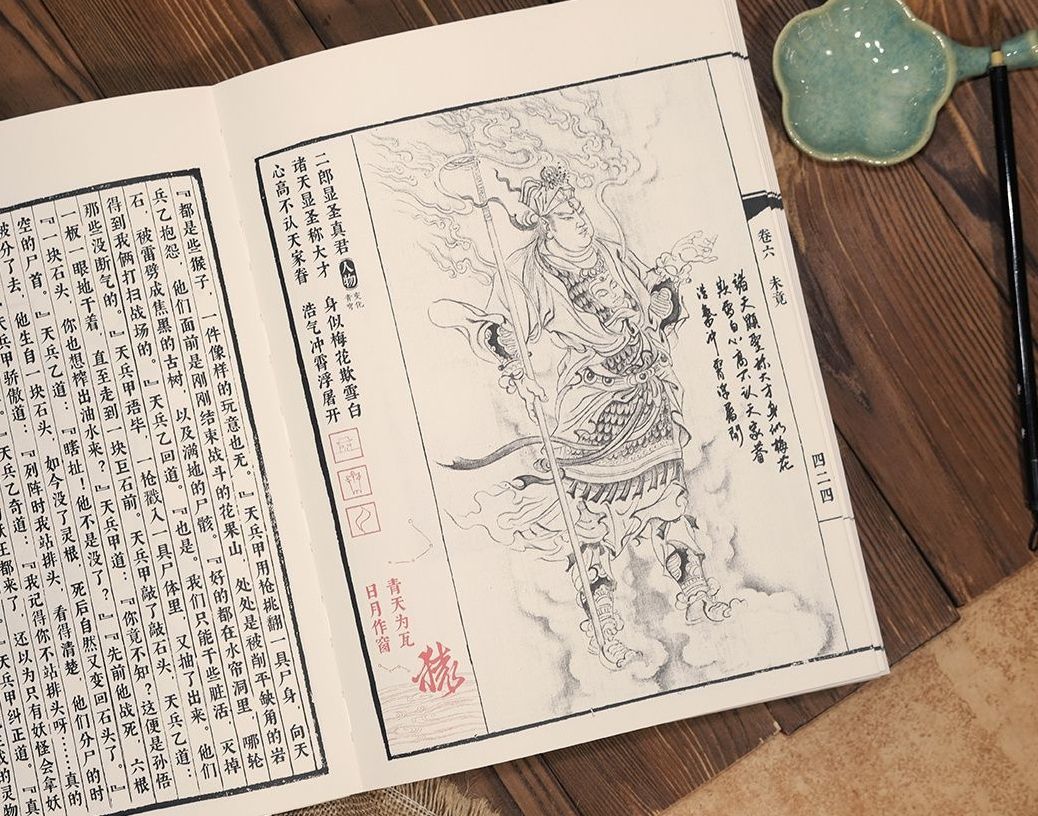 卷六 末章
四二四
諸天顯聖称大才身似梅花
欺雪白心高不认天家眷
浩氣冲霄浮屠開
二郎显圣真君 人物 变化
诸天显圣称大才 身似梅花欺雪白
心高不认天家眷 浩气冲霄浮屠开
青天为瓦
日月作窗
猿
『都是些猴子,一件像样的玩意也无。』天兵甲用枪挑翻一具尸身,向天
兵乙抱怨。他们面前是刚刚结束战斗的花果山,处处是被削平缺角的岩
石,被雷劈成焦黑的古树,以及满地的尸骸。『好的都在水帘洞里,哪轮
得到我俩打扫战场的。』天兵乙回道。『也是。我们只能干些脏活,灭掉
那些没断气的。』天兵甲语毕,一枪戳入一具尸体里,又抽了出来。他们
一板一眼地干着,直至走到一块巨石前。天兵甲敲了敲石头,天兵乙道:
『一块石头,你也想榨出油水来?』天兵甲道:『你竟不知?这便是孙悟
空的尸首。』天兵乙道:『瞎扯!他不是没了?』『先前他战死,六根
被分了去,他生自一块石头,如今没了灵根,死后自然又变回石头了。』
天兵甲骄傲道:『列阵时我站排头,看得清楚,他们分尸的时
天兵乙奇道:『我记得你不站排头呀……真的
妖王都来了,还以为只有妖怪会拿妖
天兵甲纠正道。『真
的灵物